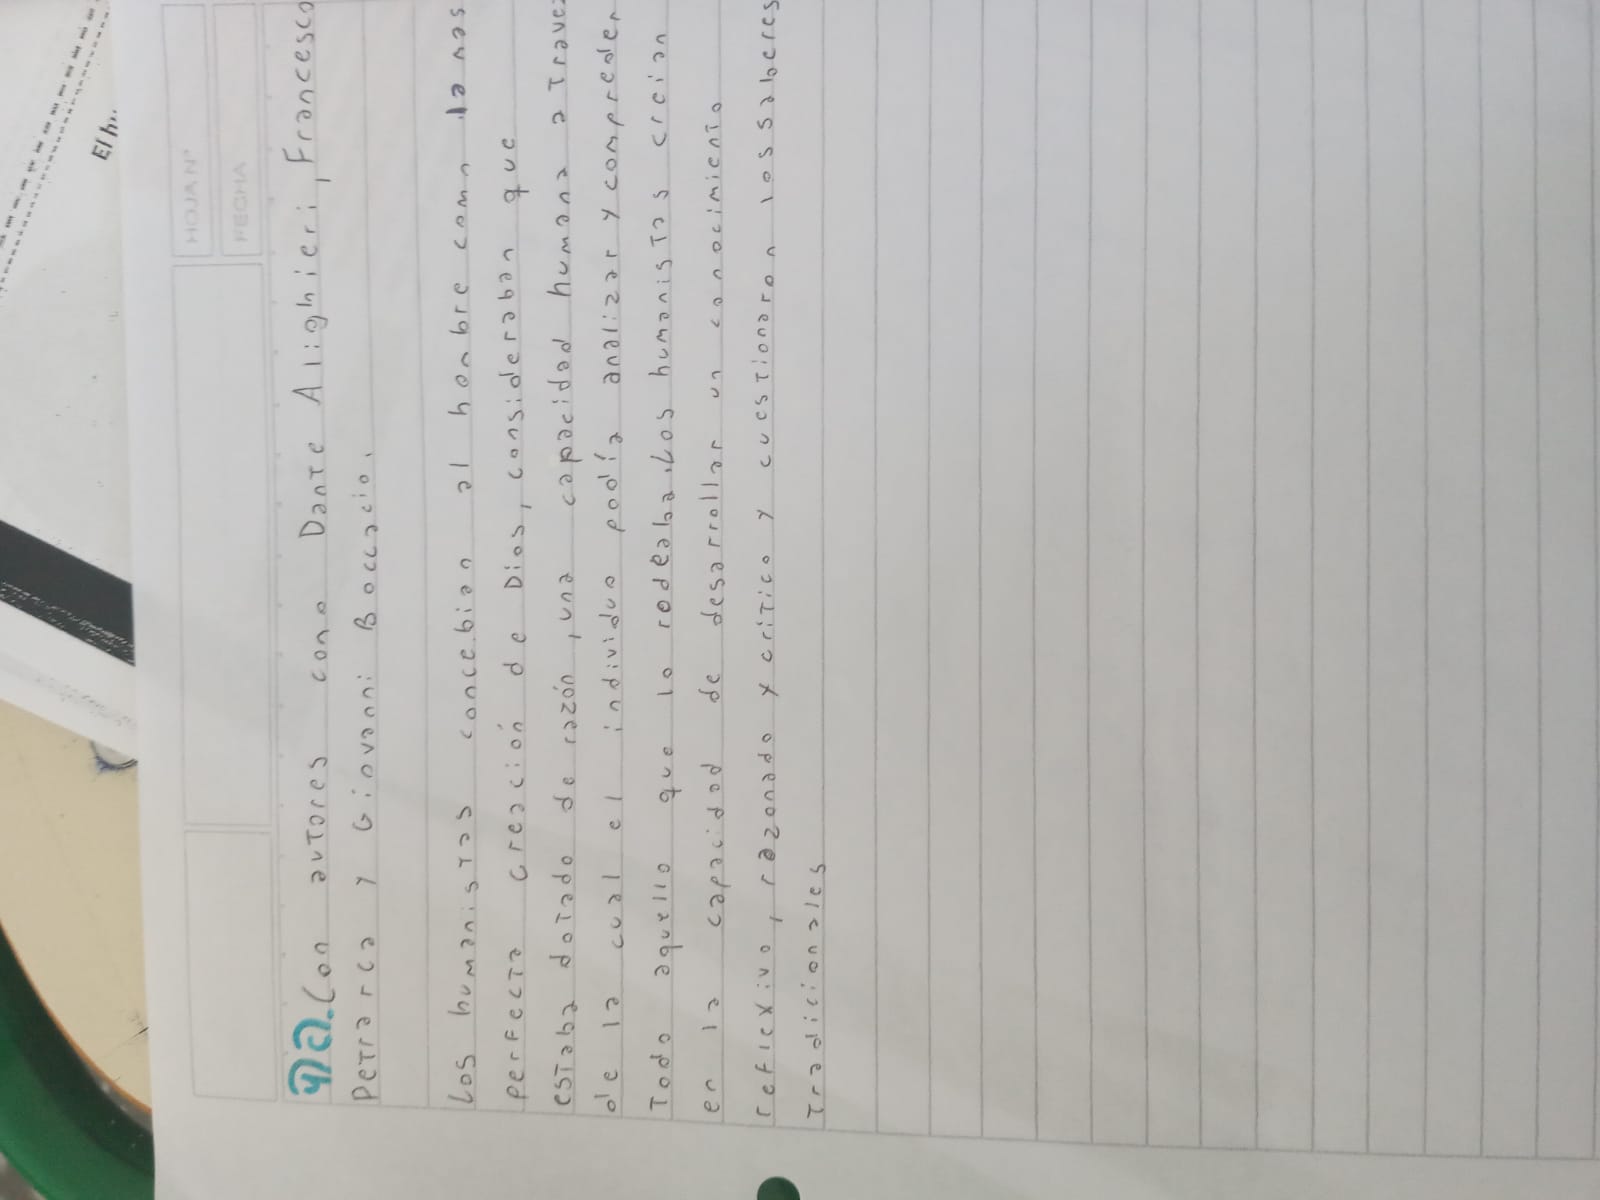 HOJA N°
FECHA
El h
4) a. Con autores como Dante Alighieri, Francesco
Petrarca y Giovanni Boccacio.
Los humanistas concebian al honbre como la mas
perfecta creación de Dios, consideraban que
estaba dotado de razón, una capacidad humana a travez
de la cual el individuo podía analizar y compreder
Todo aquello que lo rodeaba. Los humanistas creian
en la capacidad de desarrollar un conocimiento
reflexivo, razonado y critico y cuestionaron los saberes
Tradicionales